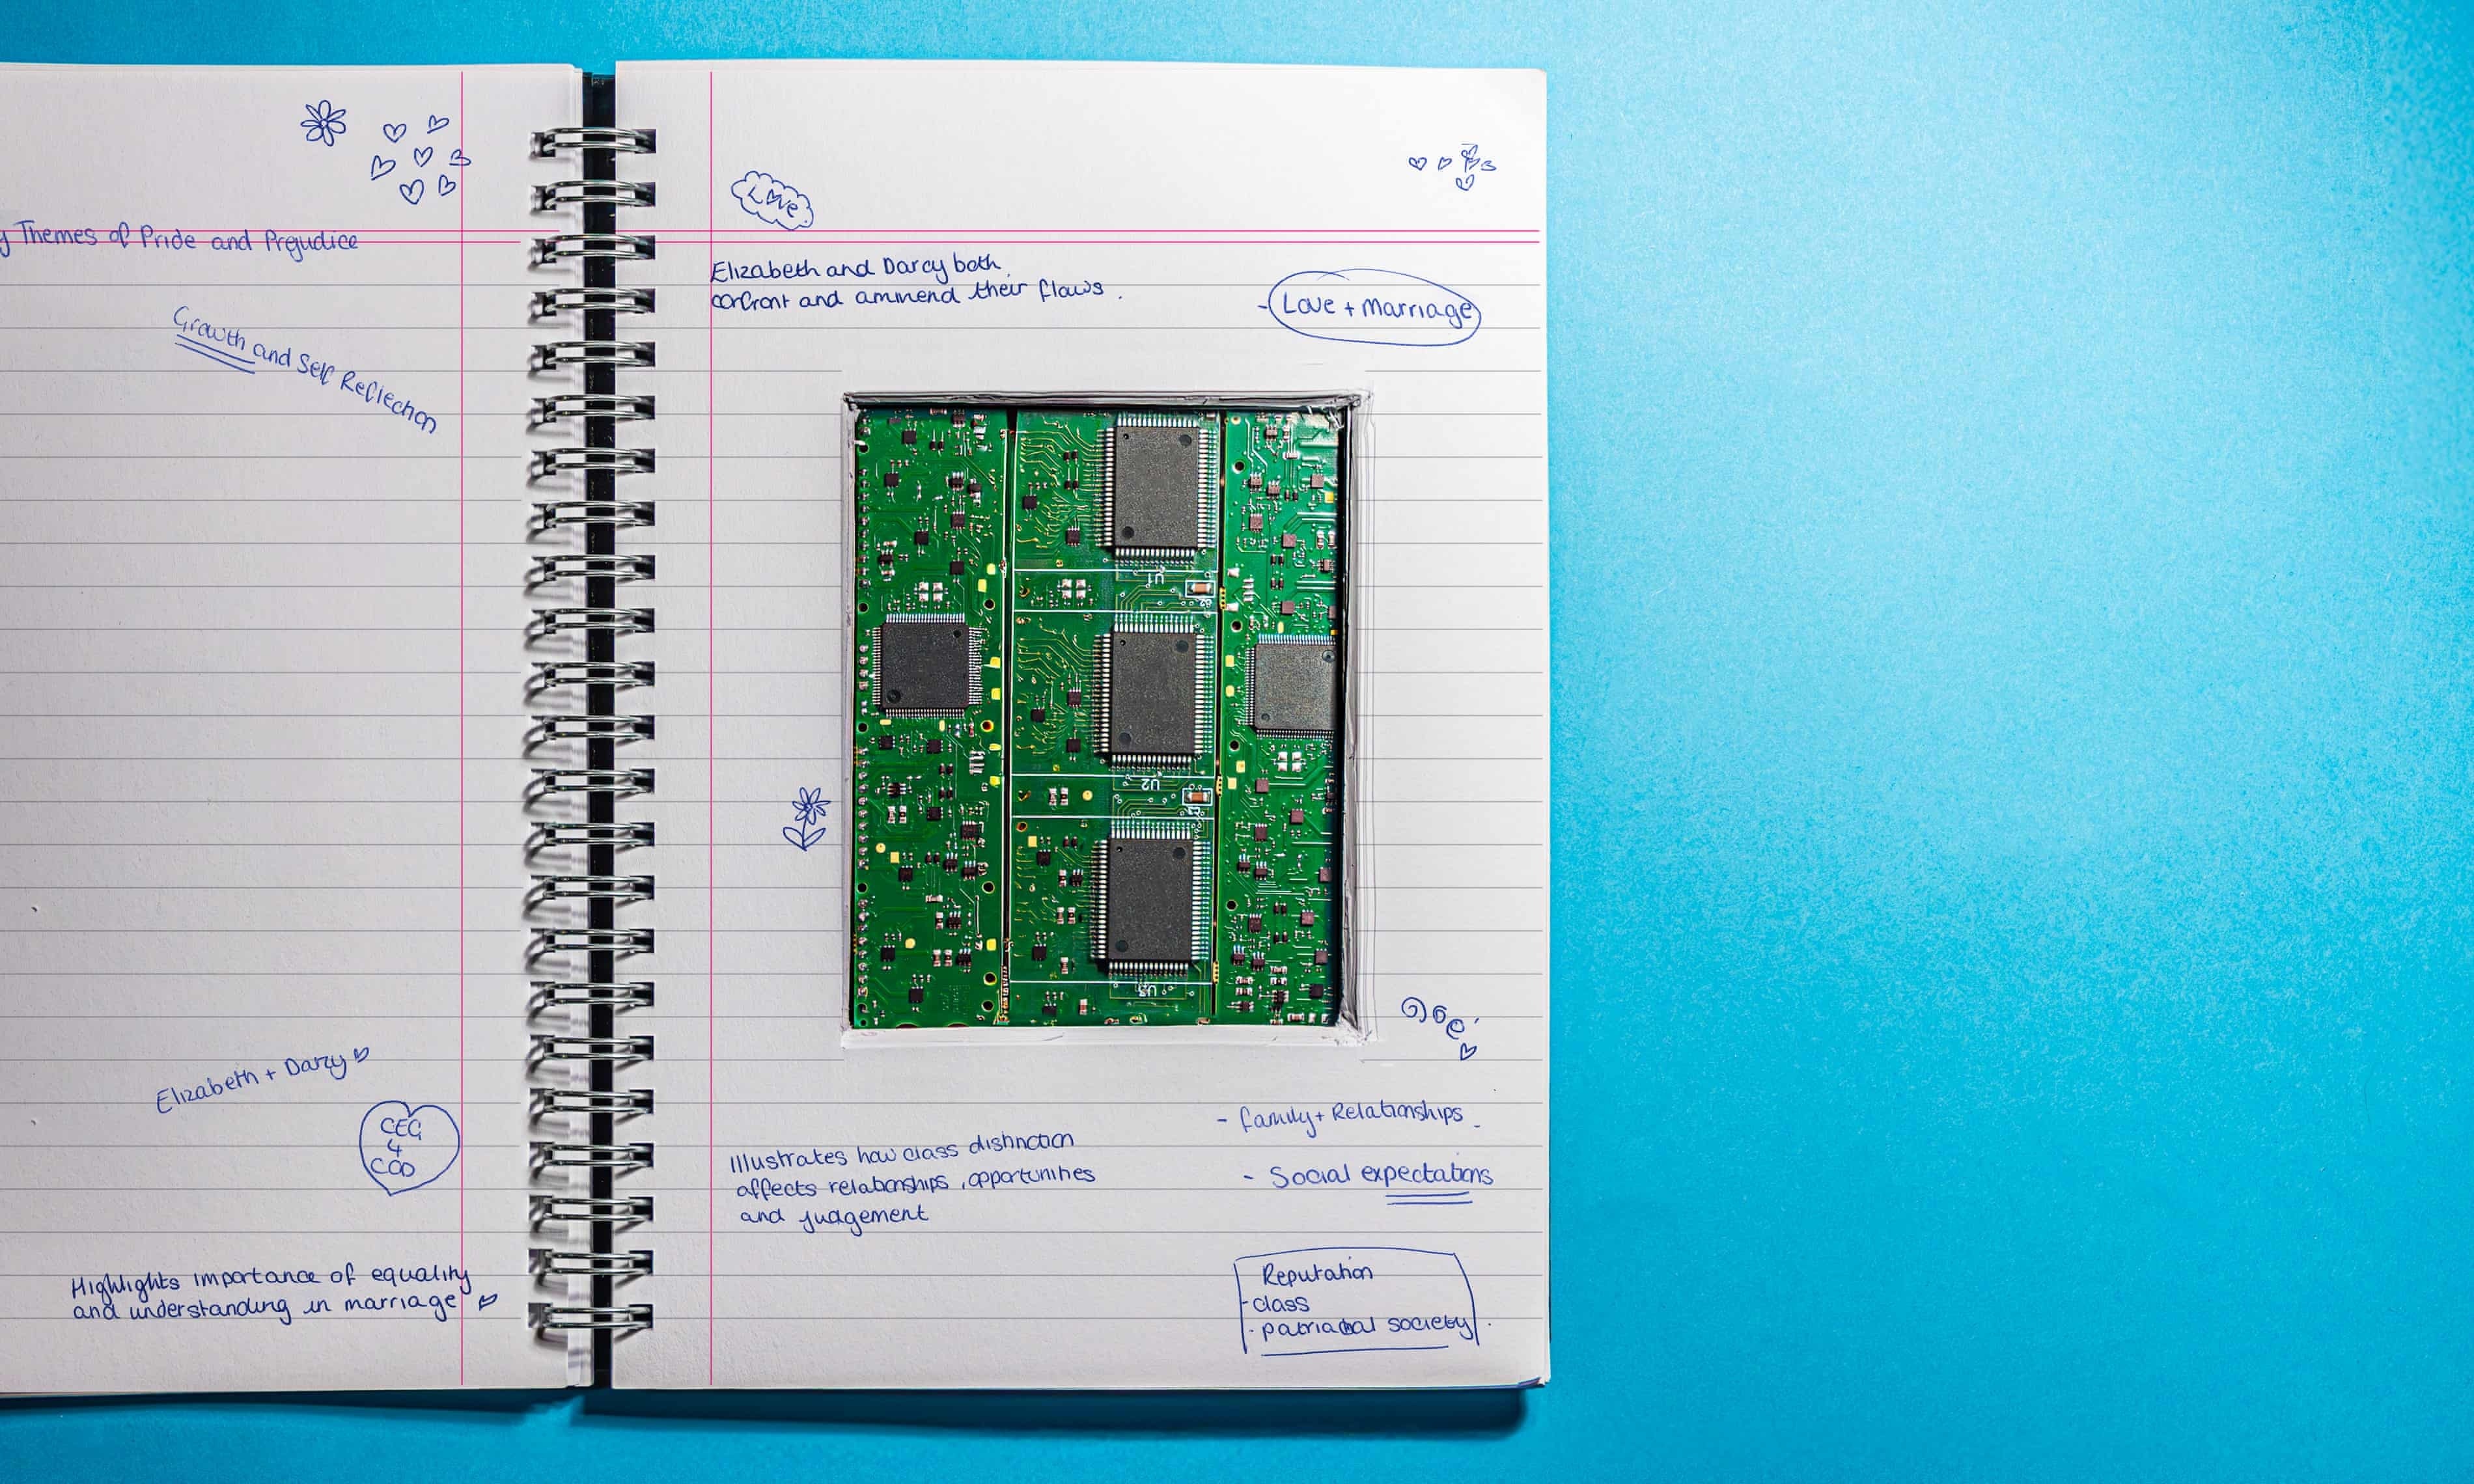 Themes of Pride and Prejudice
Growth and Self Reflection
Elizabeth + Darcy
CEG
4
COD
Highlights importance of equality
and understanding in marriage
Love
Elizabeth and Darcy both
confront and ammend their flaws.
- Love + marriage
U1
U2
U3
- family + Relationships
- Social expectations
Illustrates how class distinction
affects relationships, opportunities
and judgement
Reputation
- class
- patriachal society